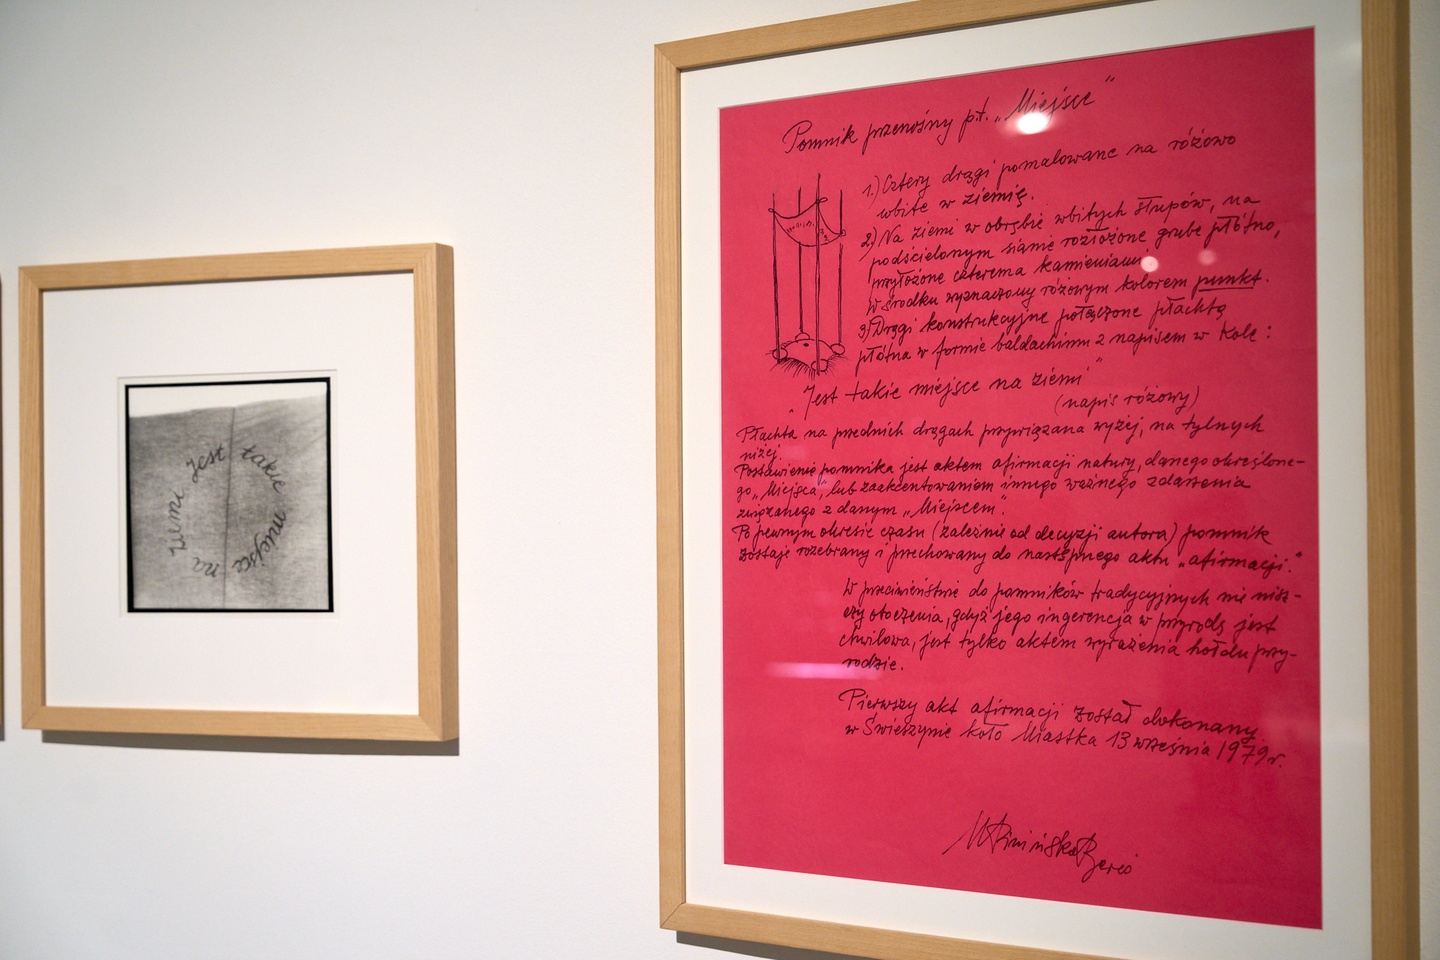 Jest takie miejsce na ziemi
Pomnik przenośny p.t. „Miejsce"
1.) Cztery drągi pomalowane na różowo
wbite w ziemię.
2.) Na ziemi w obrębie wbitych słupów, na
podścielonym sianie rozłożone grube płótno,
przyłożone czterema kamieniami.
W środku wyznaczony różowym kolorem punkt.
3.) Drągi konstrukcyjne połączone płachtą
płótna w formie baldachimu z napisem w kole:
„Jest takie miejsce na ziemi"
(napis różowy)
Płachta na przednich drągach przywiązana wyżej, na tylnych
niżej.
Postawienie pomnika jest aktem afirmacji natury, danego określone-
go „Miejsca", lub zaakcentowaniem innego ważnego zdarzenia
związanego z danym „Miejscem".
Po pewnym okresie czasu (zależnie od decyzji autora) pomnik
zostaje rozebrany i przechowany do następnego aktu „afirmacji."
W przeciwieństwie do pomników tradycyjnych nie nisz-
czy otoczenia, gdyż jego ingerencja w przyrodę jest
chwilowa, jest tylko aktem wyrażenia hołdu przy-
rodzie.
Pierwszy akt afirmacji został dokonany
w Świeszynie koło Miastka 13 września 1979 r.
M Pinińska Bereś